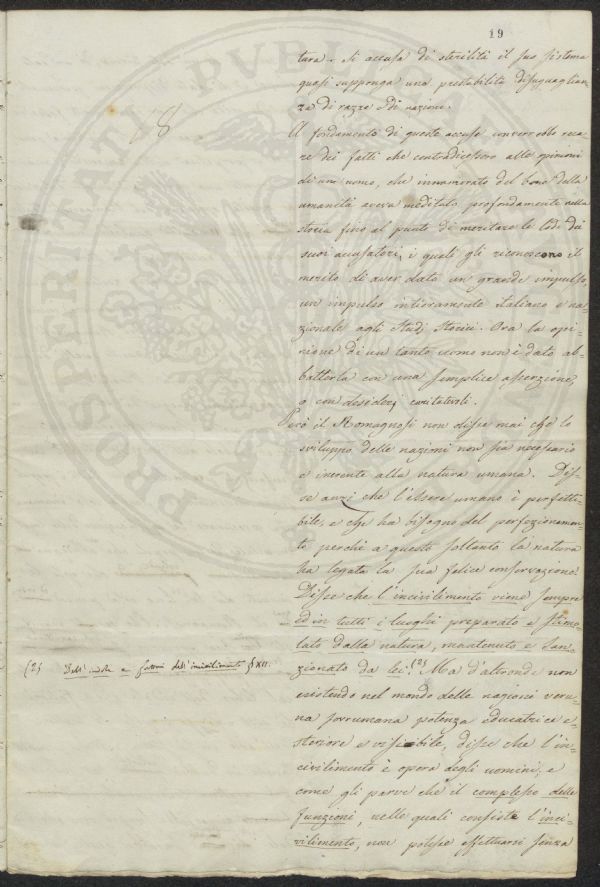 19
18
tura. Si accusa di sterilità il suo sistema
quasi supponga una prestabilita disuguaglian=
za di razze e di nazione.
A fondamento di queste accuse converrebbe reca=
re dei fatti che contradicessero alle opinioni
di un uomo, che innamorato del bene della
umanità aveva meditato profondamente nella
storia fino al punto di meritare le lodi dei
suoi accusatori, i quali gli riconoscono il
merito di aver dato un grande impulso,
un impulso intieramente italiano e na=
zionale agli Studj Storici. Ora la opi=
nione di un tanto uomo non è dato ab=
batterla con una semplice asserzione,
o con desiderj caritatevoli.
Però il Romagnosi non disse mai che lo
sviluppo delle nazioni non sia necessario
e inerente alla natura umana. Dis=
se anzi che l'essere umano è perfetti=
bile, e che ha bisogno del perfezionamen=
to perchè a questo soltanto la natura
ha legata la sua felice conservazione.
Disse che l'incivilimento viene sempre
ed in tutti i luoghi preparato e stimo=
lato dalla natura, mantenuto e san=
zionato da lei. (2) Ma d'altronde non
esistendo nel mondo delle nazioni veru=
na sovrumana potenza educatrice e=
steriore e visibile, disse che l'in=
civilimento è opera degli uomini; e
come gli parve che il complesso delle
funzioni, nelle quali consiste l'inci=
vilimento, non potesse effettuarsi senza
(2) Dell' indole e fattori dell' incivilimento § XII.
PROPRIETATI PVBL